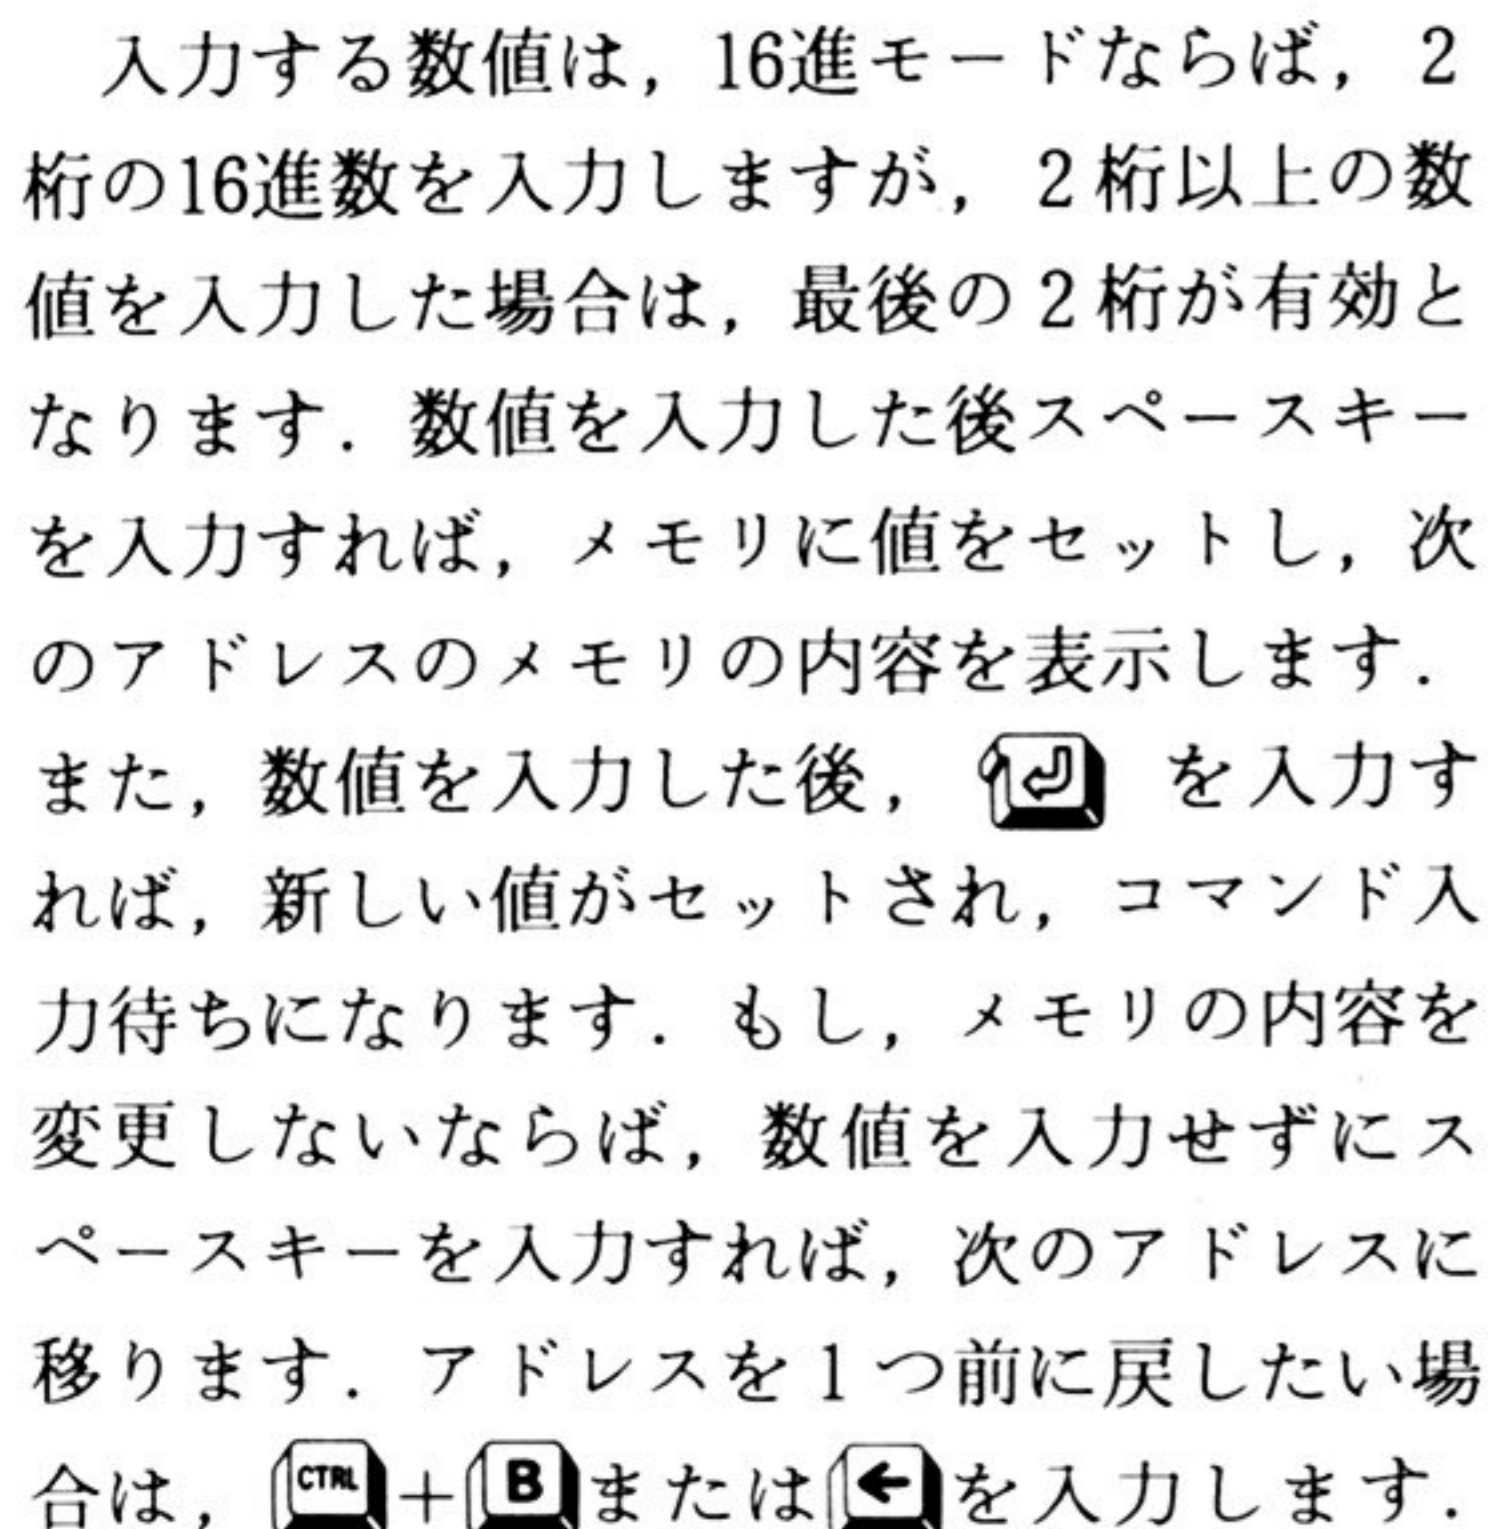 入力する数値は，16進モードならば，2
桁の16進数を入力しますが，2桁以上の数
値を入力した場合は，最後の2桁が有効と
なります．数値を入力した後スペースキー
を入力すれば，メモリに値をセットし，次
のアドレスのメモリの内容を表示します．
また，数値を入力した後，⏎を入力す
れば，新しい値がセットされ，コマンド入
力待ちになります．もし，メモリの内容を
変更しないならば，数値を入力せずにス
ペースキーを入力すれば，次のアドレスに
移ります．アドレスを1つ前に戻したい場
合は，CTRL＋Bまたは←を入力します．